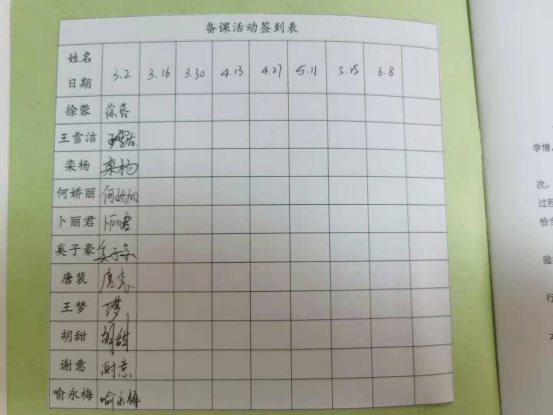 备课活动签到表
姓名
日期 3.2 3.16 3.30 4.13 4.27 5.11 5.25 6.8
徐蓉 徐蓉
王雪洁 王雪洁
栾杨 栾杨
何娇丽 何娇丽
卜丽君 卜丽君
奚子豪 奚子豪
唐裴 唐裴
王梦 王梦
胡甜 胡甜
谢意 谢意
喻永梅 喻永梅
学情
次，
过程
恰当
验
行